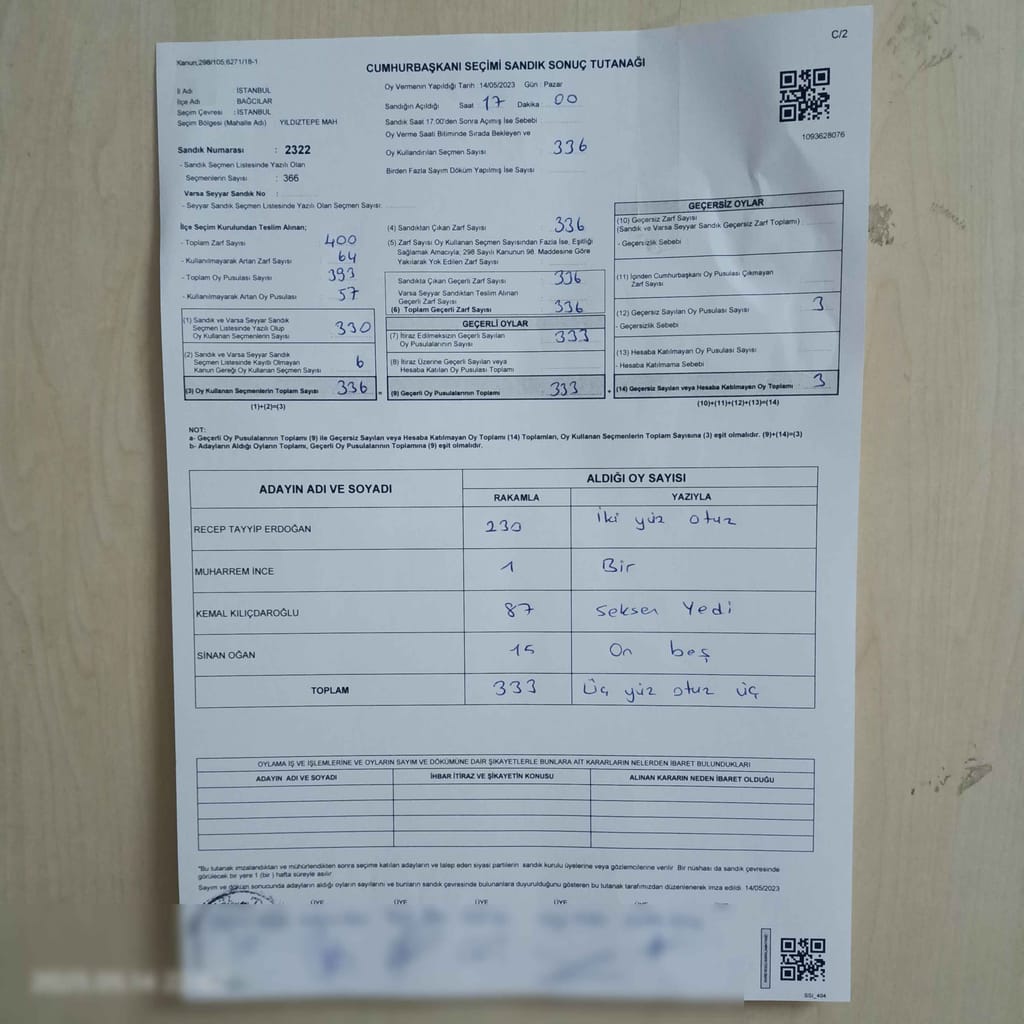 C/2
Kanun;298/105;6271/18-1
CUMHURBAŞKANI SEÇİMİ SANDIK SONUÇ TUTANAĞI
İl Adı : İSTANBUL
İlçe Adı : BAĞCILAR
Seçim Çevresi : İSTANBUL
Seçim Bölgesi (Mahalle Adı) YILDIZTEPE MAH
Sandık Numarası : 2322
- Sandık Seçmen Listesinde Yazılı Olan
Seçmenlerin Sayısı : 366
Varsa Seyyar Sandık No :
- Seyyar Sandık Seçmen Listesinde Yazılı Olan Seçmen Sayısı:
Oy Vermenin Yapıldığı Tarih :14/05/2023 Gün : Pazar
Sandığın Açıldığı Saat 17 Dakika : 00
Sandık Saat 17.00'den Sonra Açımış İse Sebebi
Oy Verme Saati Bitiminde Sırada Bekleyen ve
Oy Kullandırılan Seçmen Sayısı 336
Birden Fazla Sayım Döküm Yapılmış İse Sayısı
1093628076
İlçe Seçim Kurulundan Teslim Alınan;
- Toplam Zarf Sayısı 400
- Kullanılmayarak Artan Zarf Sayısı 64
- Toplam Oy Pusulası Sayısı 393
- Kullanılmayarak Artan Oy Pusulası 57
(1) Sandık ve Varsa Seyyar Sandık
Seçmen Listesinde Yazılı Olup
Oy Kullanan Seçmenlerin Sayısı 330
(2) Sandık ve Varsa Seyyar Sandık
Seçmen Listesinde Kayıtlı Olmayan
Kanun Gereği Oy Kullanan Seçmen Sayısı 6
(3) Oy Kullanan Seçmenlerin Toplam Sayısı 336 =
(1)+(2)=(3)
(4) Sandıktan Çıkan Zarf Sayısı 336
(5) Zarf Sayısı Oy Kullanan Seçmen Sayısından Fazla İse, Eşitliği
Sağlamak Amacıyla; 298 Sayılı Kanunun 98. Maddesine Göre
Yakılarak Yok Edilen Zarf Sayısı
Sandıkta Çıkan Geçerli Zarf Sayısı 336
Varsa Seyyar Sandıktan Teslim Alınan
Geçerli Zarf Sayısı
(6) Toplam Geçerli Zarf Sayısı 336
GEÇERLİ OYLAR
(7) İtiraz Edilmeksizin Geçerli Sayılan
Oy Pusulalarının Sayısı 333
(8) İtiraz Üzerine Geçerli Sayılan veya
Hesaba Katılan Oy Pusulası Toplamı
(9) Geçerli Oy Pusulalarının Toplamı 333 +
GEÇERSİZ OYLAR
(10) Geçersiz Zarf Sayısı
(Sandık ve Varsa Seyyar Sandık Geçersiz Zarf Toplamı)
- Geçersizlik Sebebi
(11) İçinden Cumhurbaşkanı Oy Pusulası Çıkmayan
Zarf Sayısı
(12) Geçersiz Sayılan Oy Pusulası Sayısı 3
- Geçersizlik Sebebi
(13) Hesaba Katılmayan Oy Pusulası Sayısı
- Hesaba Katılmama Sebebi
(14) Geçersiz Sayılan veya Hesaba Katılmayan Oy Toplamı 3
(10)+(11)+(12)+(13)=(14)
NOT:
a- Geçerli Oy Pusulalarının Toplamı (9) ile Geçersiz Sayılan veya Hesaba Katılmayan Oy Toplamı (14) Toplamları, Oy Kullanan Seçmenlerin Toplam Sayısına (3) eşit olmalıdır. (9)+(14)=(3)
b- Adayların Aldığı Oyların Toplamı, Geçerli Oy Pusulalarının Toplamına (9) eşit olmalıdır.
ADAYIN ADI VE SOYADI ALDIĞI OY SAYISI
RAKAMLA YAZIYLA
RECEP TAYYİP ERDOĞAN 230 İki yüz otuz
MUHARREM İNCE 1 Bir
KEMAL KILIÇDAROĞLU 87 Seksen Yedi
SİNAN OĞAN 15 On beş
TOPLAM 333 Üç yüz otuz üç
OYLAMA İŞ VE İŞLEMLERİNE VE OYLARIN SAYIM VE DÖKÜMÜNE DAİR ŞİKAYETLERLE BUNLARA AİT KARARLARIN NELERDEN İBARET BULUNDUKLARI
ADAYIN ADI VE SOYADI İHBAR İTİRAZ VE ŞİKAYETİN KONUSU ALINAN KARARIN NEDEN İBARET OLDUĞU
*Bu tutanak imzalandıktan ve mühürlendikten sonra seçime katılan adayların ve talep eden siyasi partilerin sandık kurulu üyelerine veya gözlemcilerine verilir. Bir nüshası da sandık çevresinde
görülecek bir yere 1 (bir ) hafta süreyle asılır.
Sayım ve döküm sonucunda adayların aldığı oyların sayılarını ve bunların sandık çevresinde bulunanlara duyurulduğunu gösteren bu tutanak tarafımızdan düzenlenerek imza edildi. 14/05/2023
ÜYE ÜYE ÜYE ÜYE ÜYE
SSİ_404